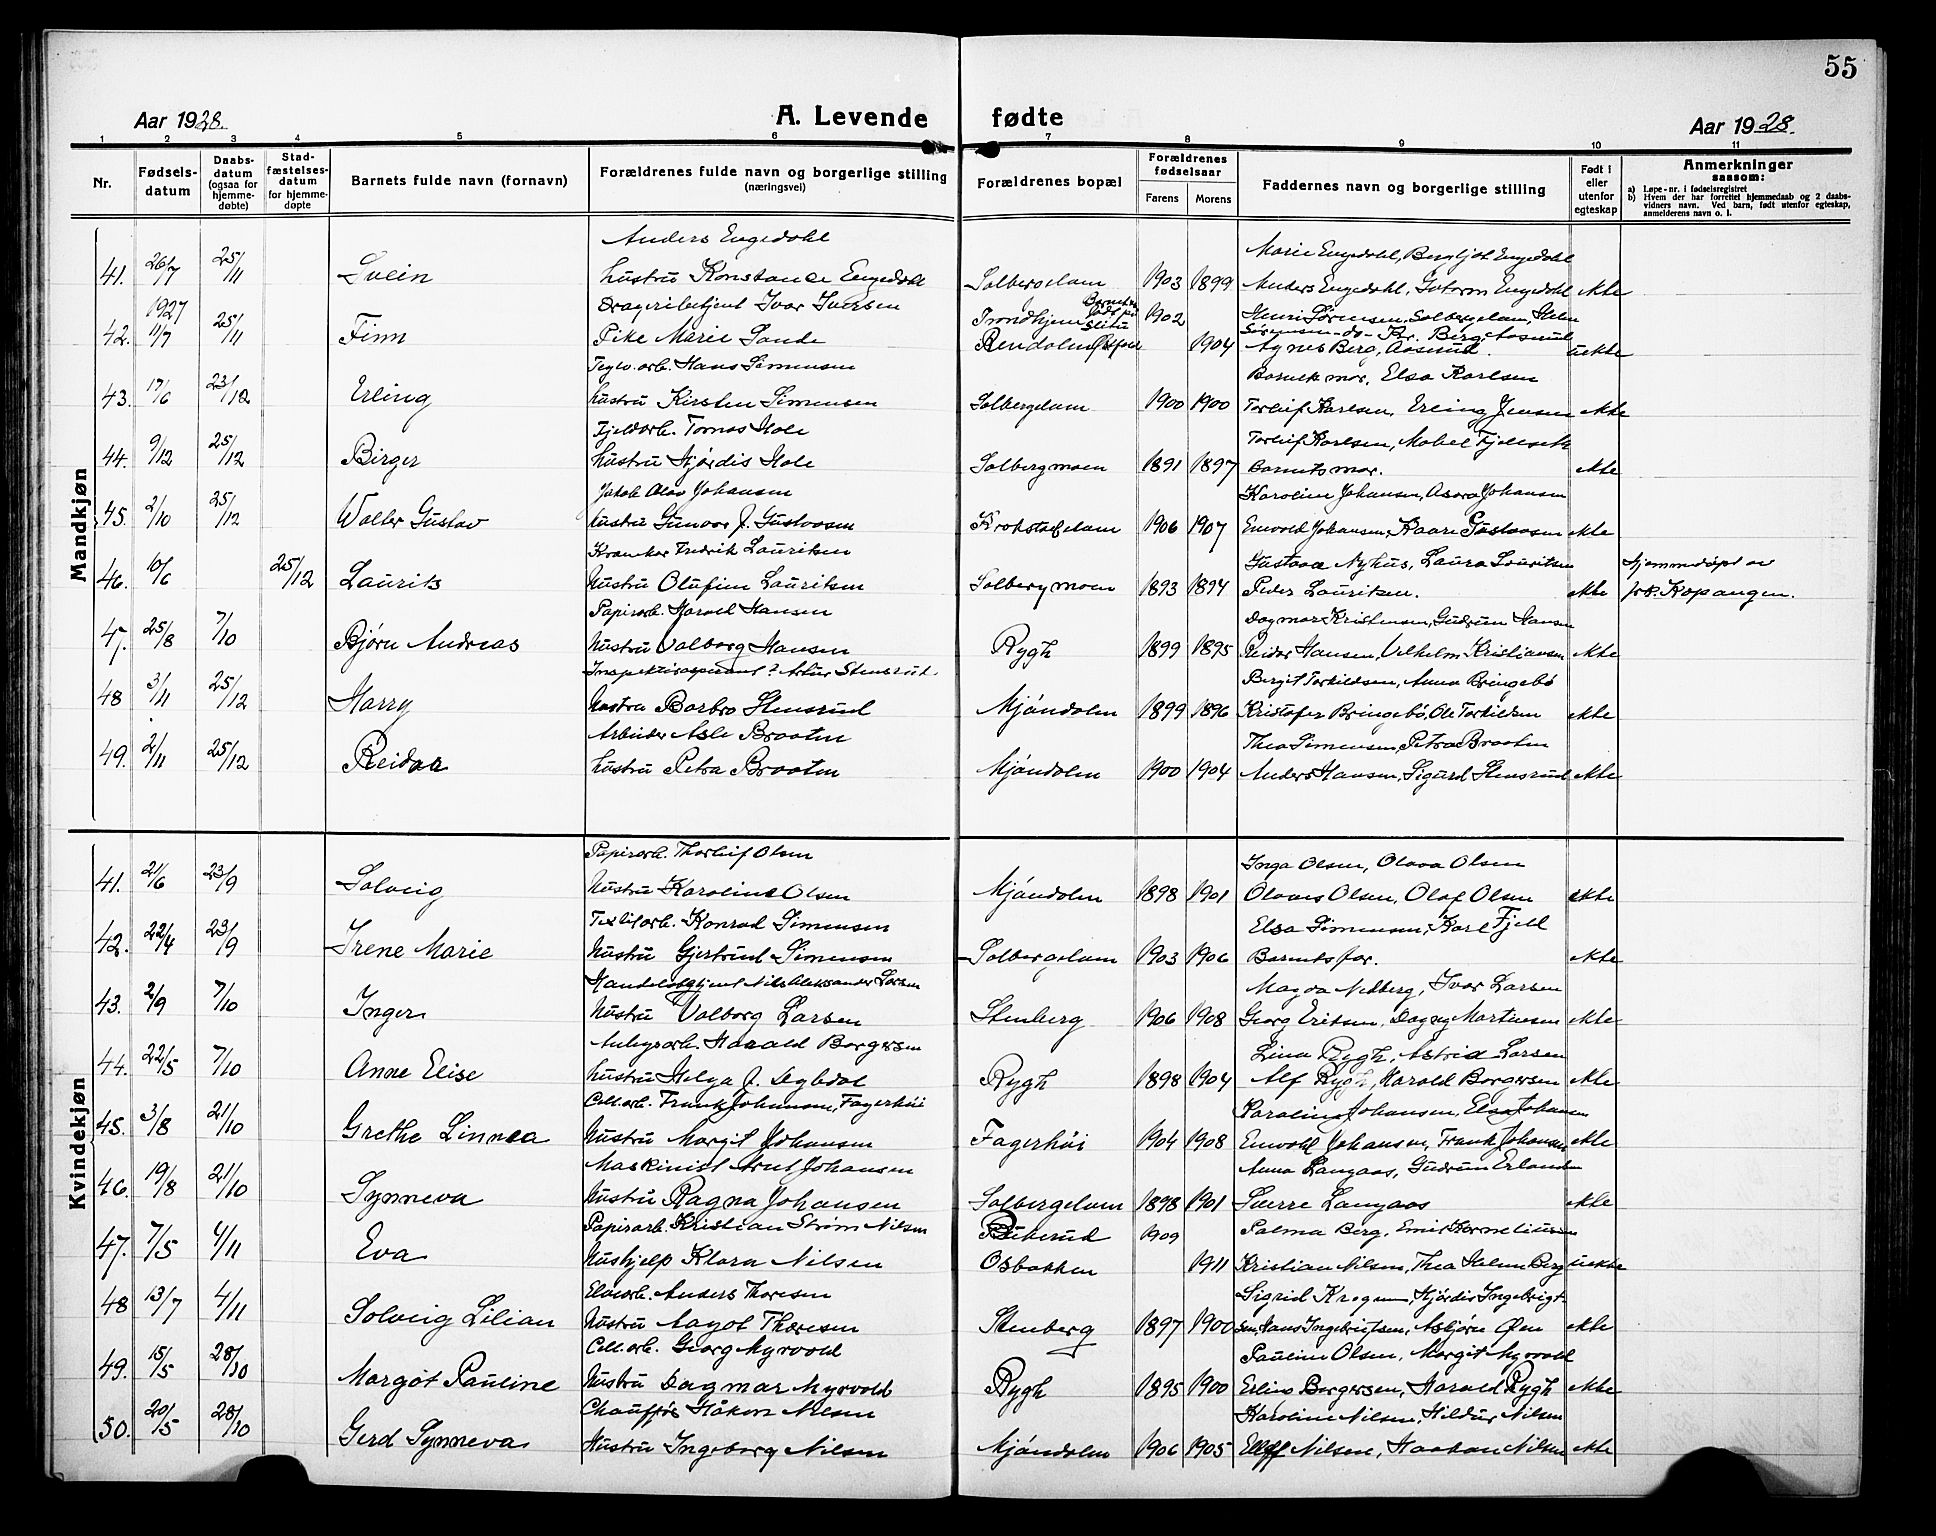 55
Aar 1928. A. Levende fødte Aar 1928.
1 2 3 4 5 6 7 8 9 10 11
Nr. Fødsels-datum Daabs-datum (ogsaa for hjemme-døbte) Stad-fæstelses-datum for hjemme-døpte Barnets fulde navn (fornavn) Forældrenes fulde navn og borgerlige stilling (næringsvei) Forældrenes bopæl Forældrenes fødselsaar Farens Morens Faddernes navn og borgerlige stilling Født i eller utenfor egteskap Anmerkninger saasom: a) Løpe-nr. i fødselsregistret b) Hvem der har forrettet hjemmedaab og 2 daabs-vidners navn. Ved barn, født utenfor egteskap, anmelderens navn o. l.
Mandkjøn
Anders Engedahl Marie Engedahl, Bergljot Engedahl
41. 26/7 25/11 Svein hustru Konstance Engedahl Solbergelven 1903 1899 Anders Engedahl, Guttorm Engedahl ekte
1927 Drageribetjent Ivar Iversen Trondhjem 1902 Henri Sørensen, Solbergelven, Helen
42. 11/7 25/11 Finn Pike Marie Sande 1904 Sørensen do. Kr. Berg, Aasmund Agnes Berg, Aasmund. uekte
Teglv.arb. Hans Simensen Barnets mor, Elsa Karlsen
43. 17/6 23/12 Erling hustru Kirsten Simensen Solbergelven 1900 1900 Torleif Karlsen, Erling Jensen ekte
Fjeldarb. Tomas Hole Torleif Karlsen, Mabel Fjelseth
44. 9/12 25/12 Birger hustru Hjørdis Hole Solbergmoen 1891 1897 Barnets mor. ekte
Jakob Olav Johansen Karoline Johansen, Asora Johansen
45. 2/10 25/12 Walter Gustav hustru Gunvor J. Gustavsen Krokstadelven 1906 1907 Enevold Johansen, Kaare Gustavsen ekte
Krankar Fredrik Lauritsen Gustava Nyhus, Laura Lauritsen Hjemmedøpt av
46. 10/6 25/12 Laurits hustru Olufine Lauritsen Solbergmoen 1893 1894 Peder Lauritsen. ekte frk. Kopangen.
Papirarb. Harald Hansen Dagmar Kristensen, Gudrun Hansen
47. 25/8 7/10 Bjørn Andreas hustru Valborg Hansen Rygh 1899 1895 Reidar Hansen, Vilhelm Kristiansen ekte
Inspektørasperant? Artur Stensrud. Bergit Torkildsen, Anna Bringebø
48 3/11 25/12 Harry hustru Barbro Stensrud Mjøndalen 1899 1896 Kristofer Bringebø, Ole Torkildsen ekte
Arbeider Asle Braaten Thea Simensen, Petra Braaten
49. 2/11 25/12 Reidar hustru Petra Braaten Mjøndalen 1900 1904 Anders Hansen, Sigurd Stensrud ekte
Kvindekjøn
Papirarb. Thorleif Olsen Inga Olsen, Olava Olsen
41. 21/6 23/9 Solveig hustru Karoline Olsen Mjøndalen 1898 1901 Olaves Olsen, Olaf Olsen ekte
Textilarb. Konrad Simensen Elsa Simensen, Karl Fjeld
42. 22/4 23/9 Irene Marie hustru Gjertrud Simensen Solbergelven 1903 1906 Barnets far. ekte
Handelsbetjent Nils Aleksander Larsen Magda Nedberg, Ivar Larsen
43. 2/9 7/10 Inger hustru Valborg Larsen Stenberg 1906 1908 Georg Eriksen, Dagny Martinsen ekte
Anlegsarb. Harald Borgersen Lina Rygh, Astrid Larsen
44. 22/5 7/10 Anne Elise hustru Helga J. Rygh 1898 1904 Alf Rygh, Harald Borgersen ekte
Cell.arb. Frank Johansen, Fagerhøi Karoline Johansen, Elsa Johansen
45. 3/8 21/10 Grethe Linnea hustru Margit Johansen Fagerhøi 1904 1908 Enevold Johansen, Frank Johansen ekte
Maskinist Arnt Johansen Anna Langaas, Gudrun Erlandsen
46. 19/8 21/10 Synneva hustru Ragna Johansen Solbergelven 1898 1901 Sverre Langaas ekte
Papirarb. Kristian Strøm Nilsen 1909 Palma Berg, Emil Korneliusen
47. 7/5 4/11 Eva hushjelp Klara Nilsen Osbakken 1911 Kristian Nilsen, Thea Helene Berg uekte
Elvearb. Anders Thoresen Sigrid Krogsrud, Hjørdis Ingebrigt-
48 13/7 4/11 Solveig Lilian hustru Aagot Thoresen Stenberg 1897 1900 sen, Hans Ingebrigtsen, Asbjørn Øen ekte
Cell.arb. Georg Myrvold Pauline Olsen, Margit Myrvold
49. 15/5 28/10 Margot Pauline hustru Dagmar Myrvold Rygh 1895 1900 Erling Borgersen, Harald Rygh ekte
Chauffør Håkon Nilsen Karoline Nilsen, Hildur Nilsen
50. 20/5 28/10 Gerd Synneva hustru Ingeborg Nilsen Mjøndalen 1906 1905 Elleff Nilsen, Haakon Nilsen ekte